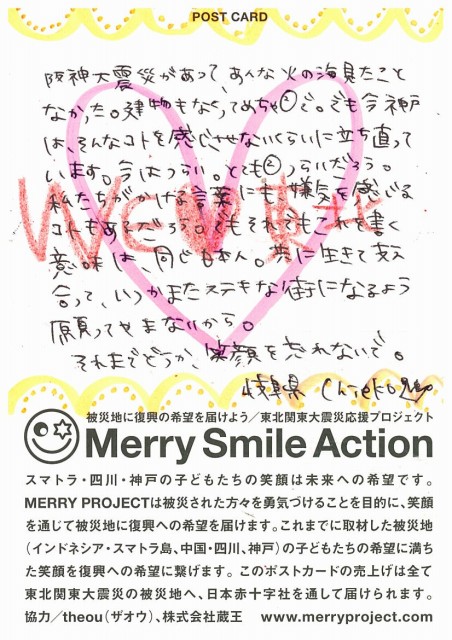 POST CARD
阪神大震災があって、あんな火の海見たこと
なかった。建物もなくってめちゃ②で。でも今神戸
は、そんなコトを感じさせないくらいに立ち直って
います。今はつらい。とても②つらいだろう。
私たちがかける言葉にも嫌気を感じる
コトもあるだろう。でもそれでもこれを書く
意味は、同じ日本人。共に生きて支え
合って、いつかまたステキな街になるよう
願ってやまないから。
それまでどうか、笑顔を忘れないで。
WE 東北
岐阜県 Chieko
被災地に復興の希望を届けよう／東北関東大震災応援プロジェクト
Merry Smile Action
スマトラ・四川・神戸の子どもたちの笑顔は未来への希望です。
MERRY PROJECTは被災された方々を勇気づけることを目的に、笑顔
を通じて被災地に復興への希望を届けます。これまでに取材した被災地
（インドネシア・スマトラ島、中国・四川、神戸）の子どもたちの希望に満ち
た笑顔を復興への希望に繋げます。このポストカードの売上げは全て
東北関東大震災の被災地へ、日本赤十字社を通して届けられます。
協力／theou（ザオウ）、株式会社蔵王 www.merryproject.com